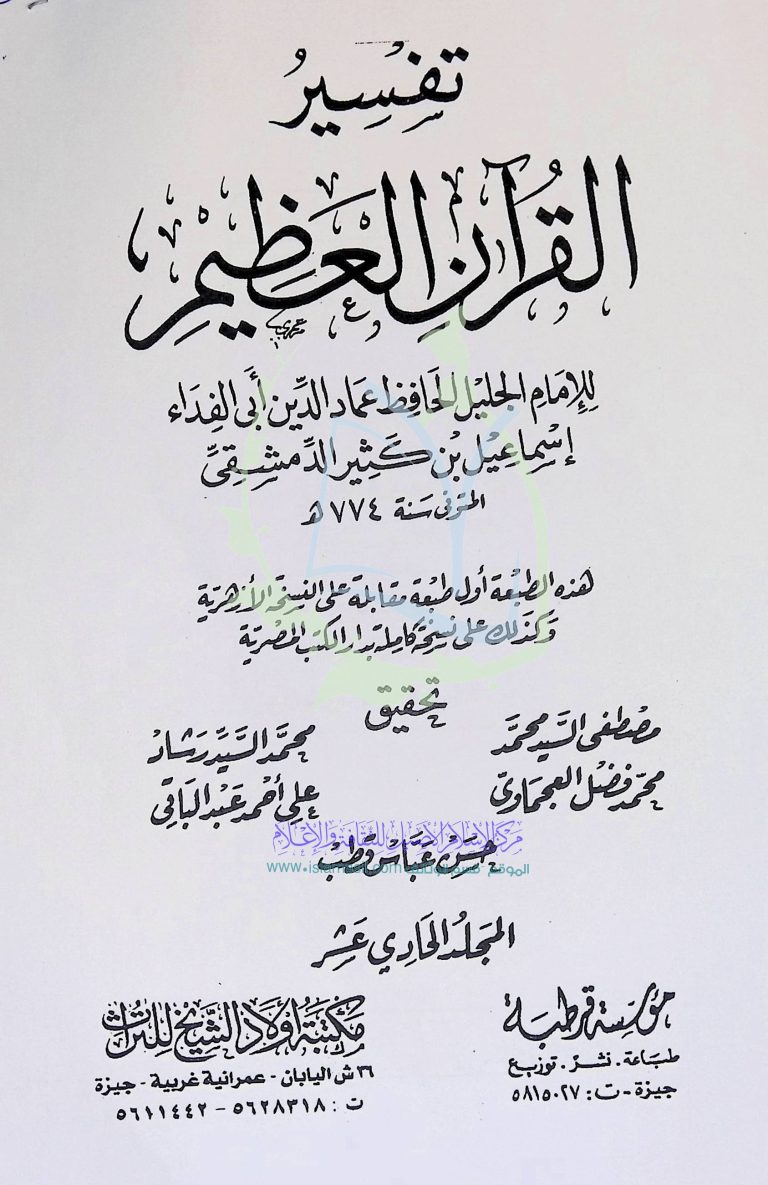 تفسير
القرآن العظيم
للإمام الجليل الحافظ عماد الدين أبي الفداء
إسماعيل بن كثير الدمشقي
المتوفى سنة ٧٧٤ ه
هذه الطبعة أول طبعة مقابلة على النسخة الأزهرية
وكذلك على نسخة كاملة بدار الكتب المصرية
تحقيق
مصطفى السيد محمد
محمد السيد رشاد
محمد فضل العجماوي
علي أحمد عبد الباقي
مركز الإسلام الأصيل للثقافة والإعلام
حسن عباس قطب
الموقع
المجلد الحادي عشر
مؤسسة قرطبة
طباعة . نشر . توزيع
جيزة - ت : ٥٨١٥٠٢٧
مكتبة أولاد الشيخ للتراث
٣٦ ش اليابان - عمرانية غربية - جيزة
ت : ٥٦٢٨٣١٨ - ٥٦١١٤٤٢